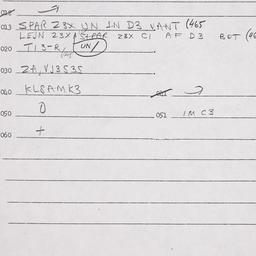 013 SPAR 23X UN IN D3 VANT (465
LEJN 23X/SPAR 23X C1 AF D3 BET
020 TI3-R/ UN
030 ZA,VJ3535
040 KL8AMK3
050 0
051 IM C3
060 +